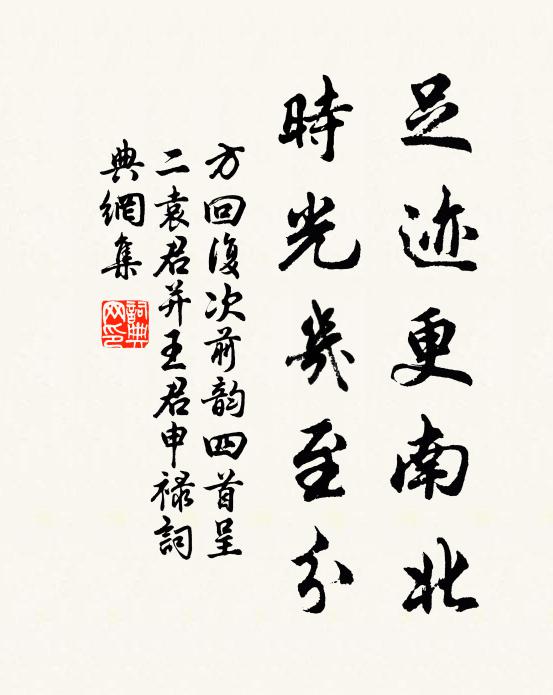 足迹更南北
時光幾至分
方回復次前韵四首呈
二袁君并王君申禄詞
典網集
詞典網印